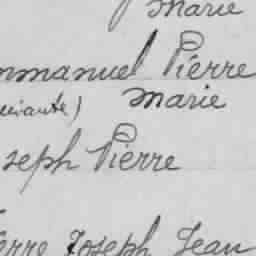 Marie
mmanuel Pierre
Marie
seph Pierre
erre Joseph Jean